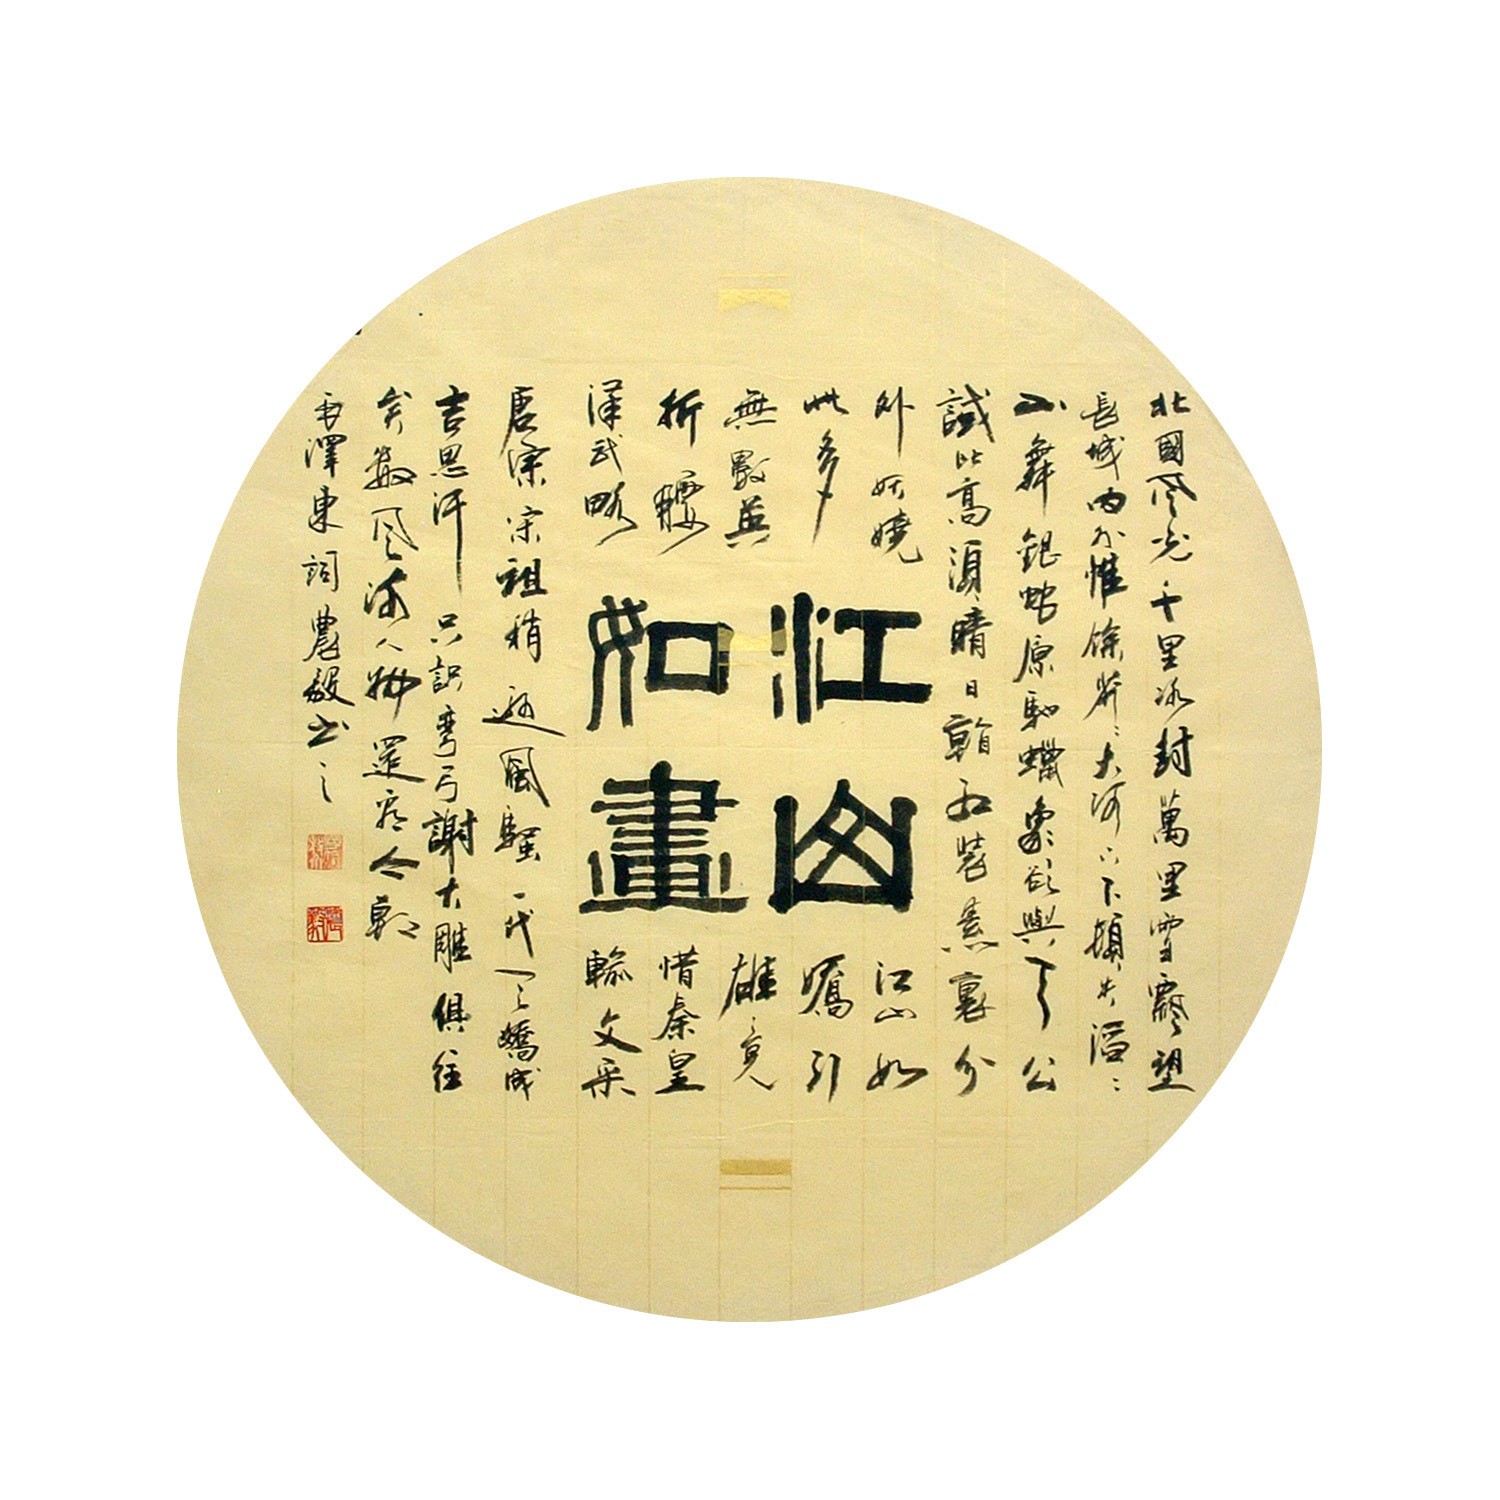 北國风光千里冰封萬里雪飄望
長城内外惟餘莽〻大河上下頓失滔〻
山舞銀蛇原馳蠟象欲與天公
試比高須晴日看紅裝素裹分
外妖嬈江山如
此多嬌引
無數英雄竞
折腰惜秦皇
漢武略輸文采
唐宗宋祖稍遜風騷一代天嬌成
吉思汗只識彎弓謝大雕俱往
矣數风流人物還看今朝
毛澤東詞農毅书之
江山
如畫